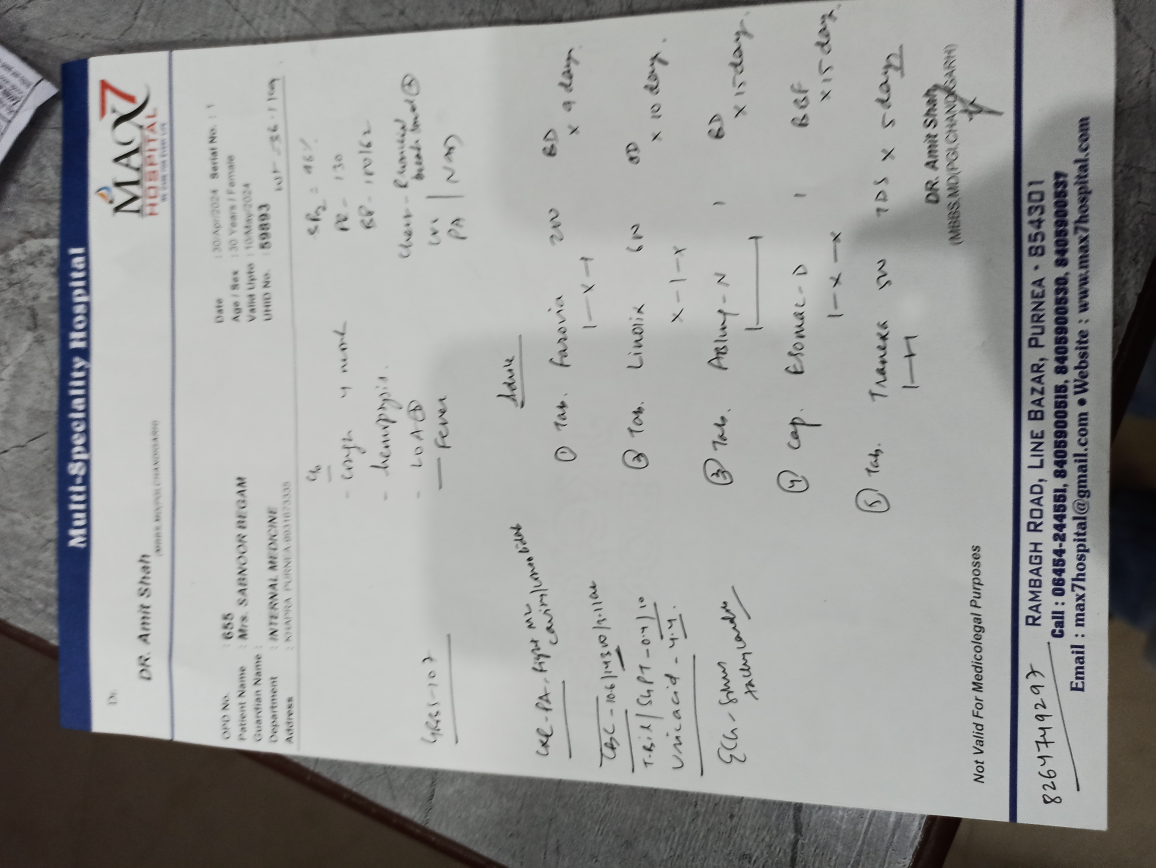 Multi-Speciality Hospital
DR. Amit Shah
MAX7
HOSPITAL
OPD No. : 655
Patient Name : Mrs. SABNOOR BEGAM
Guardian Name :
Department : INTERNAL MEDICINE
Address : KHAPRA PURNEA
Date : 30/Apr/2024 Serial No. : 1
Age / Sex : 30 Years / Female
Valid Upto : 10/May/2024
UHID No. : 59893
C/o
- Cough 4 month
- hemoptysis.
- LOA
- Fever
SPO2 = 96%
PR - 130
BP - 100/62
Chest -
CVS
PA | NAD
GRBS-107
CXR-PA - Right
CBC - 10.6/14300/3.11 lac
T.Bil/SGPT - 0.4/10
Uric acid - 4.4.
ECG - Sinus
tachycardia
Advice
① Tab. Farovia 200 BD
1-X-1 x 9 days
② Tab. Linolix 600 OD
X-1-X x 10 days.
③ Tab. Ablung-N 1 BD
1 1 x 15 days
④ Cap. Esomac-D 1 BBF
1-X-X x 15 days.
⑤ Tab. Tranexa 500 TDS x 5 days
DR. Amit Shah
(MBBS,MD(PGI,CHANDIGARH)
Not Valid For Medicolegal Purposes
8264749297
RAMBAGH ROAD, LINE BAZAR, PURNEA - 854301
Call : 06454-244551, 8405900515, 8405900530, 8405900537
Email : max7hospital@gmail.com • Website : www.max7hospital.com